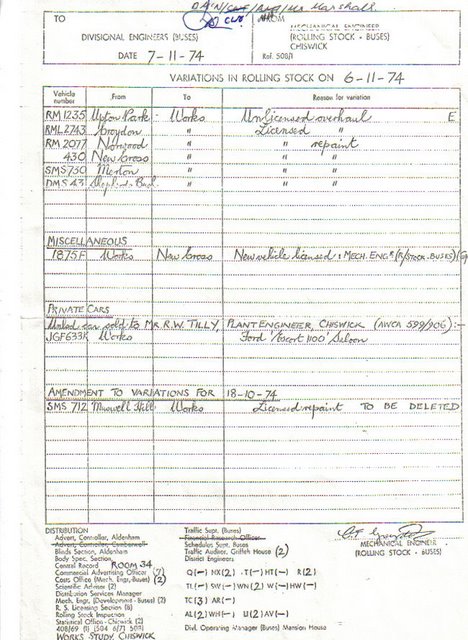 Marshall.
TO
FROM
DIVISIONAL ENGINEERS (BUSES)
MECHANICAL ENGINEER
(ROLLING STOCK - BUSES)
CHISWICK
DATE 7-11-74
Ref. 508/1
VARIATIONS IN ROLLING STOCK ON 6-11-74
Vehicle number From To Reason for variation
RM 1235 Upton Park Works Unlicensed overhaul E
RML 2743 Croydon " Licensed "
RM 2077 Norwood " " repaint
430 New Cross " " "
SMS 750 Merton " " "
DMS 43 Shepherds Bush " " "
MISCELLANEOUS
1875F Works New Cross New vehicle licensed : MECH. ENGR (R/STOCK. BUSES)
PRIVATE CARS
Used car sold to MR. R.W. TILLY, PLANT ENGINEER, CHISWICK (AWCA 599/906) :-
JGF 633K Works Ford 'Escort 1100' Saloon
AMENDMENT TO VARIATIONS FOR 18-10-74
SMS 712 Muswell Hill Works Licensed repaint TO BE DELETED
DISTRIBUTION
Advert. Controller, Aldenham
Advert. Controller, Camberwell
Blinds Section, Aldenham
Body Spec. Section
Central Record ROOM 34
Commercial Advertising Officer (7)
Costs Office (Mech. Engr. Buses) (2)
Scientific Adviser (2)
Distribution Services Manager
Mech. Engr. (Development - Buses) (2)
R. S. Licensing Section (8)
Rolling Stock Inspection
Statistical Office - Chiswick (2)
408/69 (1) (504 6/71 503)
WORKS STUDY CHISWICK
Traffic Supt. (Buses)
Financial Research Officer
Schedules Supt. Buses
Traffic Auditor, Griffith House (2)
District Engineers
Q(—) NX(2) T(—) HT(—) R(2)
TL(—) SW(—) WN(2) W(—) HW(—)
TC(3) AR(—)
AL(2) WH(—) U(2) AV(—)
Divl. Operating Manager (Buses) Mansion House
MECHANICAL ENGINEER
(ROLLING STOCK - BUSES)